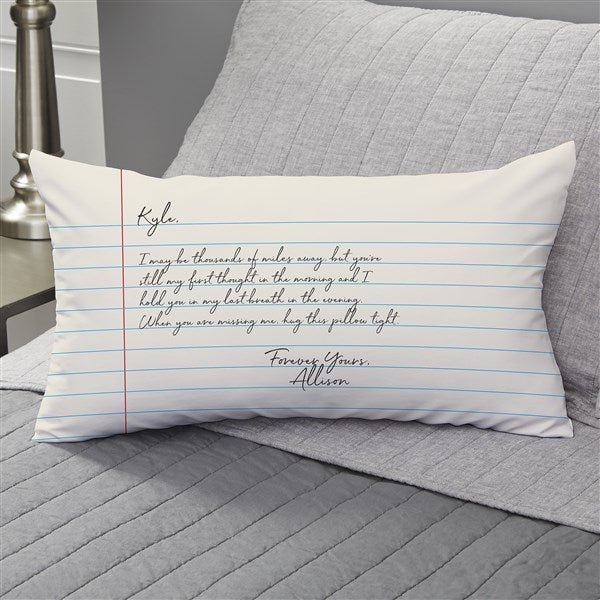 Kyle,
I may be thousands of miles away, but you're
still my first thought in the morning and I
hold you in my last breath in the evening.
When you are missing me, hug this pillow tight.
Forever Yours,
Allison